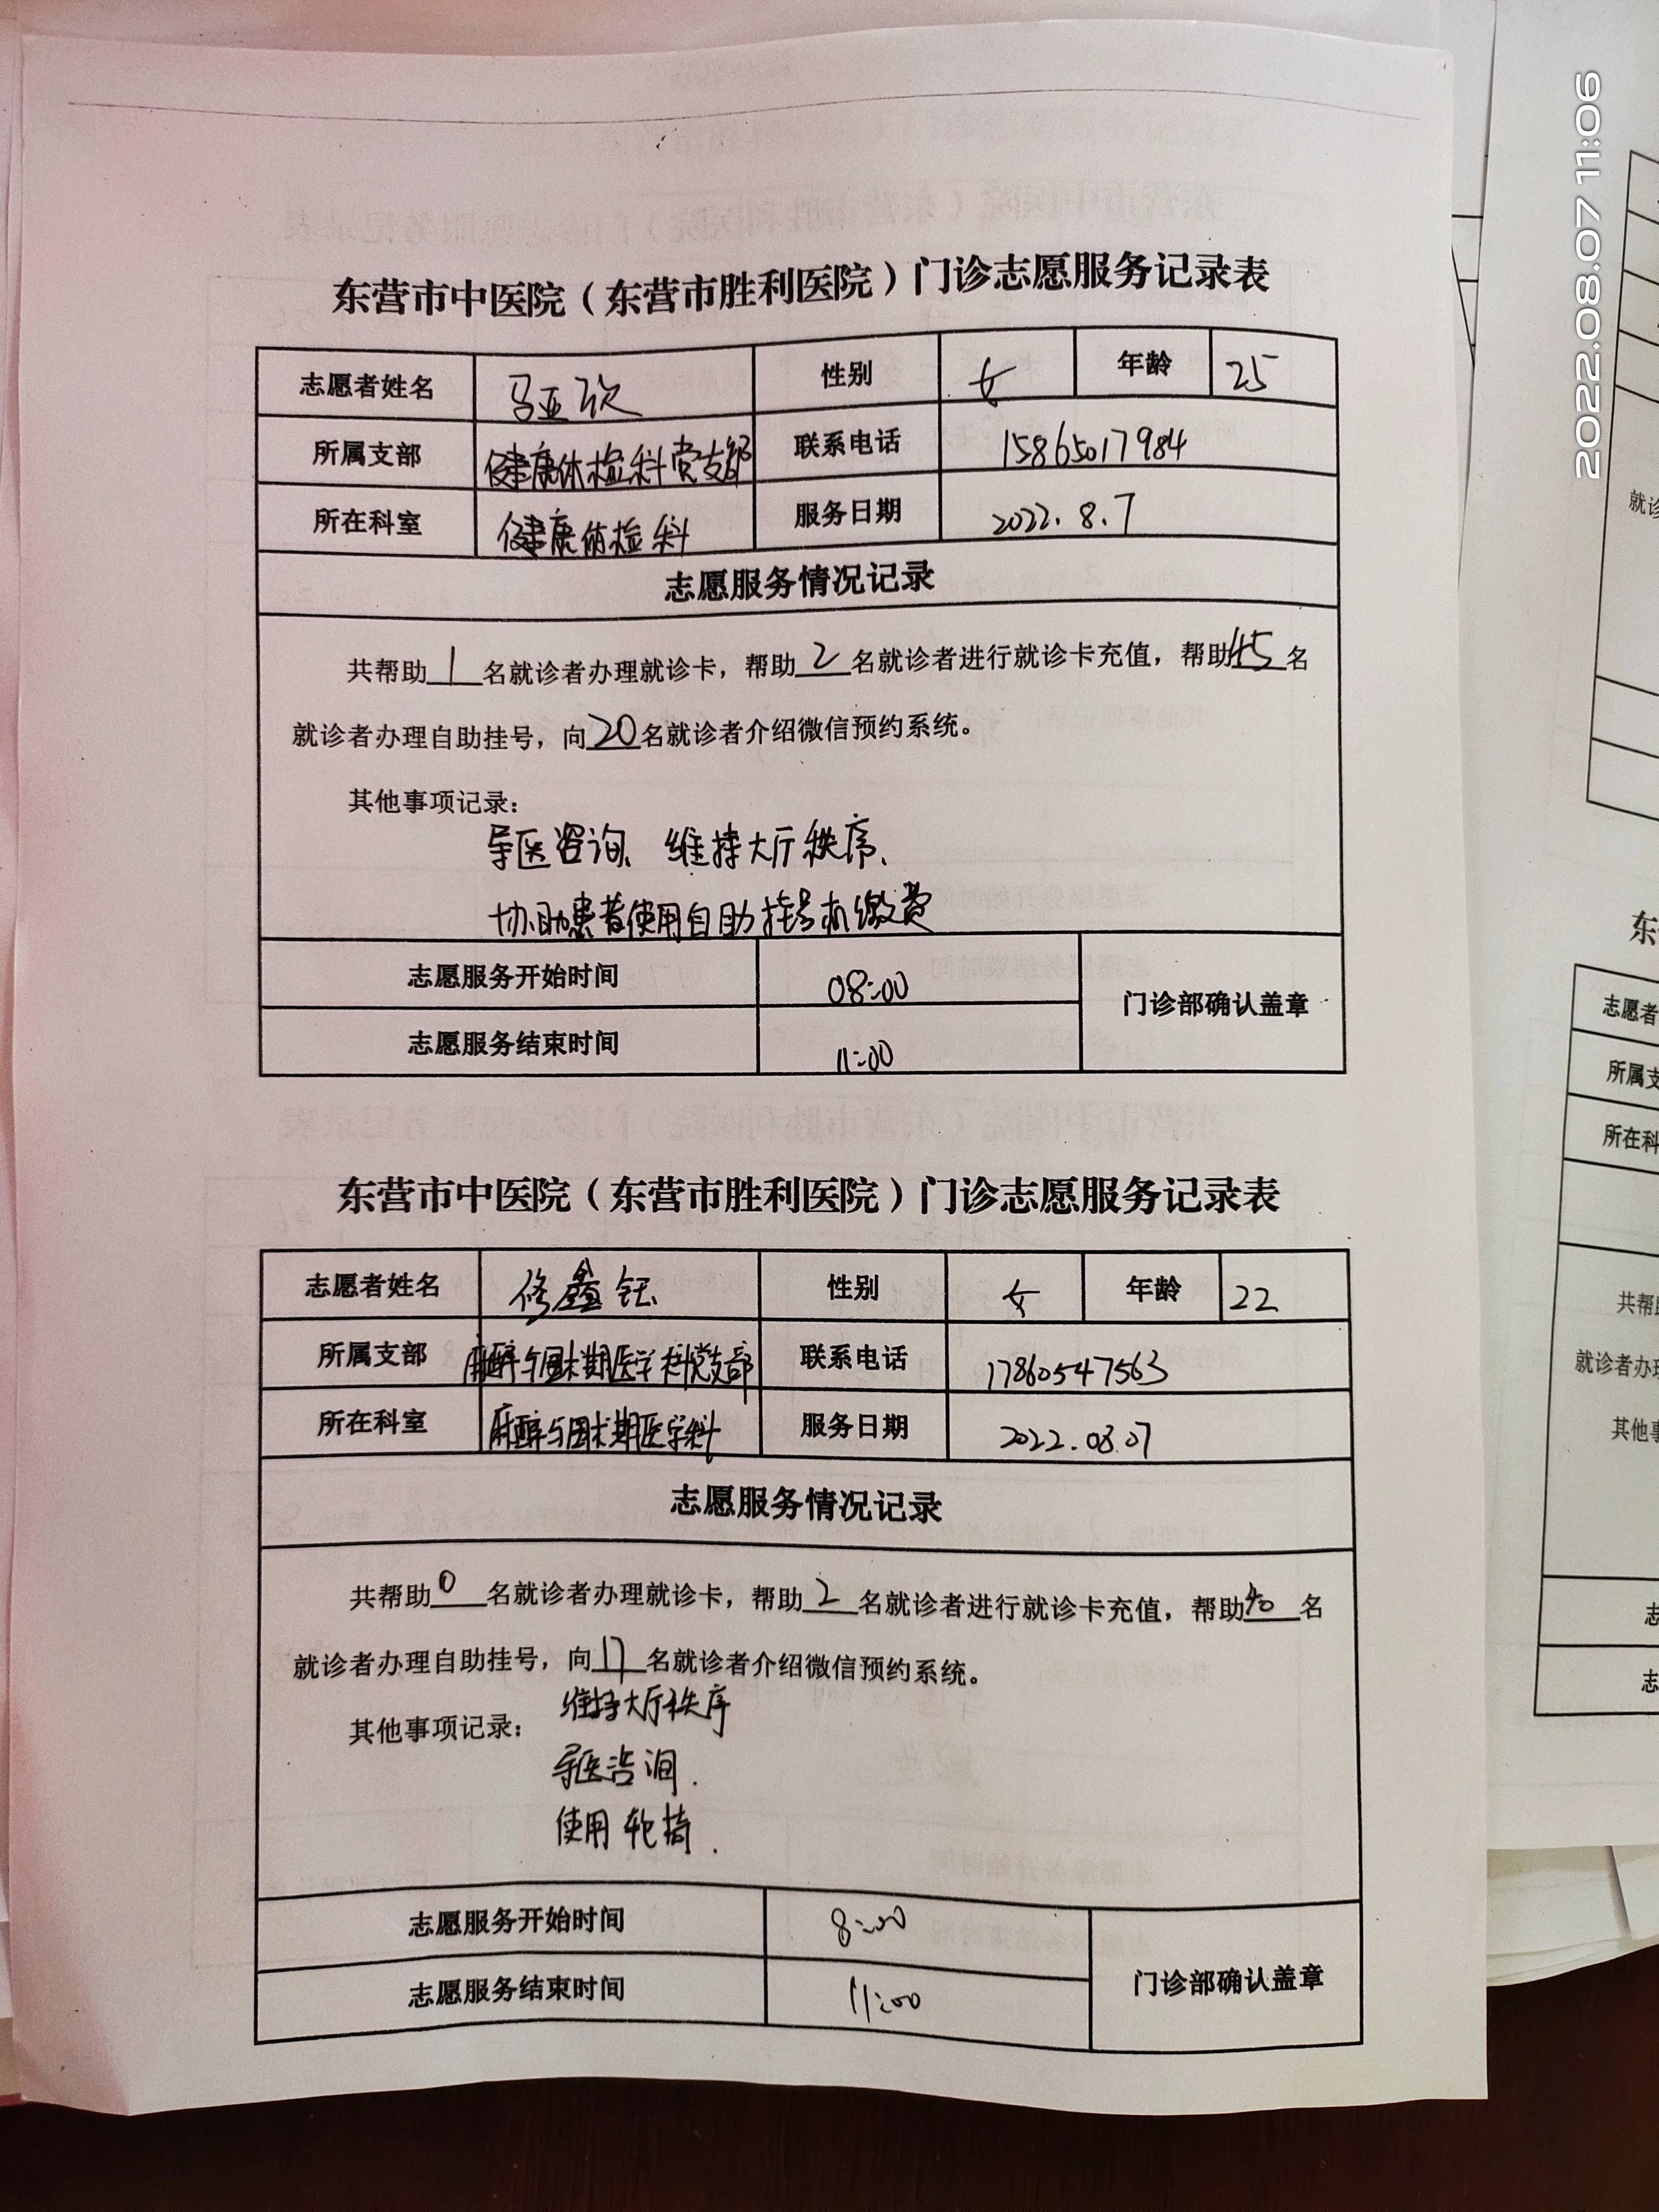 2022.08.07 11:06
东营市中医院（东营市胜利医院）门诊志愿服务记录表
志愿者姓名 马亚欣 性别 女 年龄 25
所属支部 健康体检科党支部 联系电话 15865017984
所在科室 健康体检科 服务日期 2022.8.7
志愿服务情况记录
共帮助1名就诊者办理就诊卡，帮助2名就诊者进行就诊卡充值，帮助45名
就诊者办理自助挂号，向20名就诊者介绍微信预约系统。
其他事项记录：
导医咨询、维持大厅秩序、
协助患者使用自助挂号机缴费
志愿服务开始时间 08:00
门诊部确认盖章
志愿服务结束时间 11:00
东营市中医院（东营市胜利医院）门诊志愿服务记录表
志愿者姓名 修鑫钰 性别 女 年龄 22
所属支部 麻醉与围术期医学科党支部 联系电话 17860547563
所在科室 麻醉与围术期医学科 服务日期 2022.08.07
志愿服务情况记录
共帮助0名就诊者办理就诊卡，帮助2名就诊者进行就诊卡充值，帮助40名
就诊者办理自助挂号，向17名就诊者介绍微信预约系统。
其他事项记录： 维持大厅秩序
导医咨询.
使用轮椅.
志愿服务开始时间 8:00
门诊部确认盖章
志愿服务结束时间 11:00
就诊
东
志愿者
所属支
所在科
共帮
就诊者办
其他事
志
志